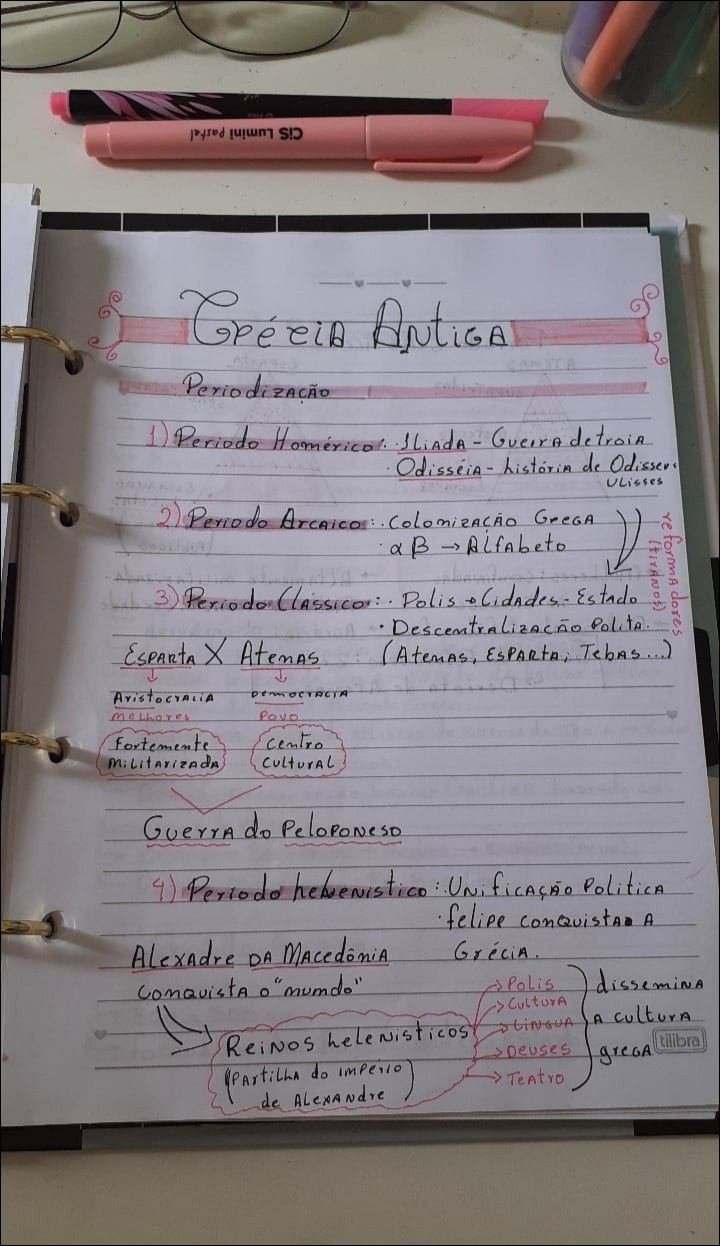 CiS Lumini Pastel
Grécia Antiga
Periodização
1) Período Homérico: · Ilíada - Guerra de troia
· Odisséia - história de Odisseu.
Ulisses
2) Período Arcaico: · Colonização Grega
· α β → Alfabeto
reformadores
(tiranos)
3) Período Clássico: · Polis → Cidades-Estado
· Descentralização Polita.
Esparta X Atenas : (Atenas, Esparta, Tebas...)
Aristocracia Democracia
melhores Povo
Fortemente Centro
militarizada Cultural
Guerra do Peloponeso
4) Período helenístico: · Unificação Política
· felipe conquista a
Alexadre da Macedônia Grécia.
conquista o "mundo"
Reinos helenísticos
(Partilha do império
de Alexandre)
→ Polis
→ Cultura
→ Língua
→ Deuses
→ Teatro
dissemina
a cultura
grega
tilibra